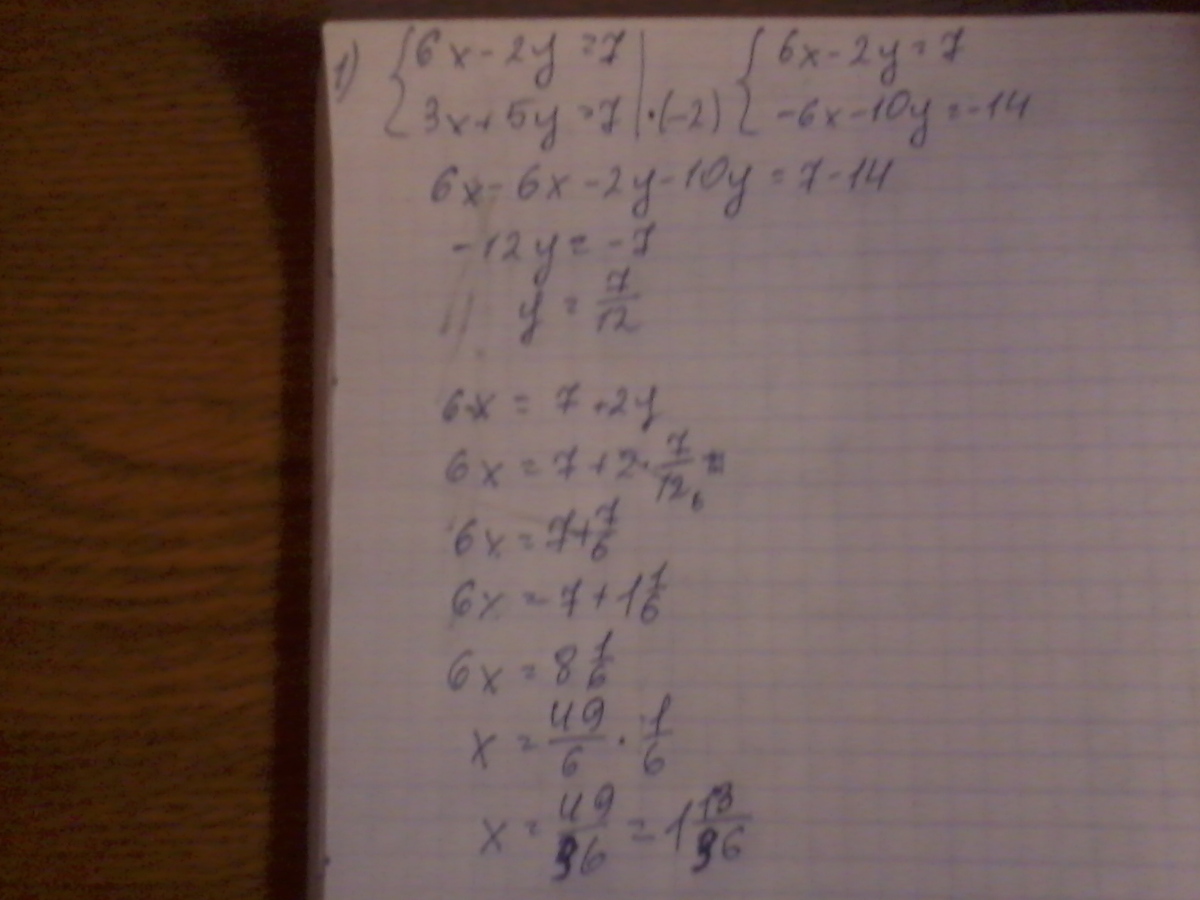 1) { 6x - 2y = 7 | { 6x - 2y = 7
3x + 5y = 7 | · (-2) { -6x - 10y = -14
6x - 6x - 2y - 10y = 7 - 14
-12y = -7
y = 7/12
6x = 7 + 2y
6x = 7 + 2 · 7/12 6 =
6x = 7 + 7/6
6x = 7 + 1 1/6
6x = 8 1/6
x = 49/6 · 1/6
x = 49/36 = 1 13/36